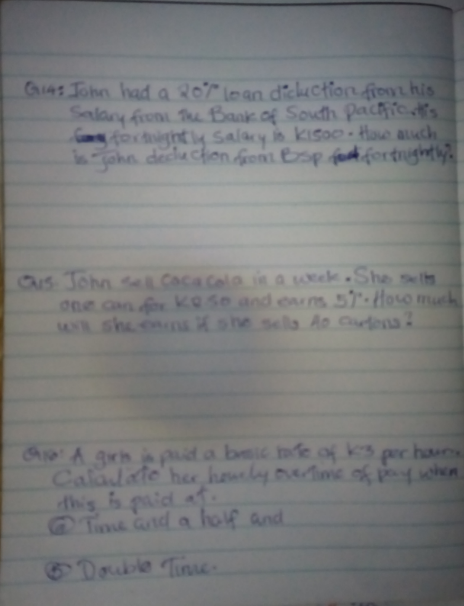 Q14: John had a 20% loan diduction from his
Salary from the Bank of South Pacific. His
fortnightly Salary is K1500. How much
is John deduction from Bsp fortnightly?
Q15 John sell Coca Cola in a week. She sells
one can for K0 50 and earns 5%. How much
will she earns if she sells 40 cartons?
Q16: A girls is paid a basic rate of K3 per hour.
Calculate her hourly overtime of pay when
this is paid at.
(a) Time and a half and
(b) Double Time.